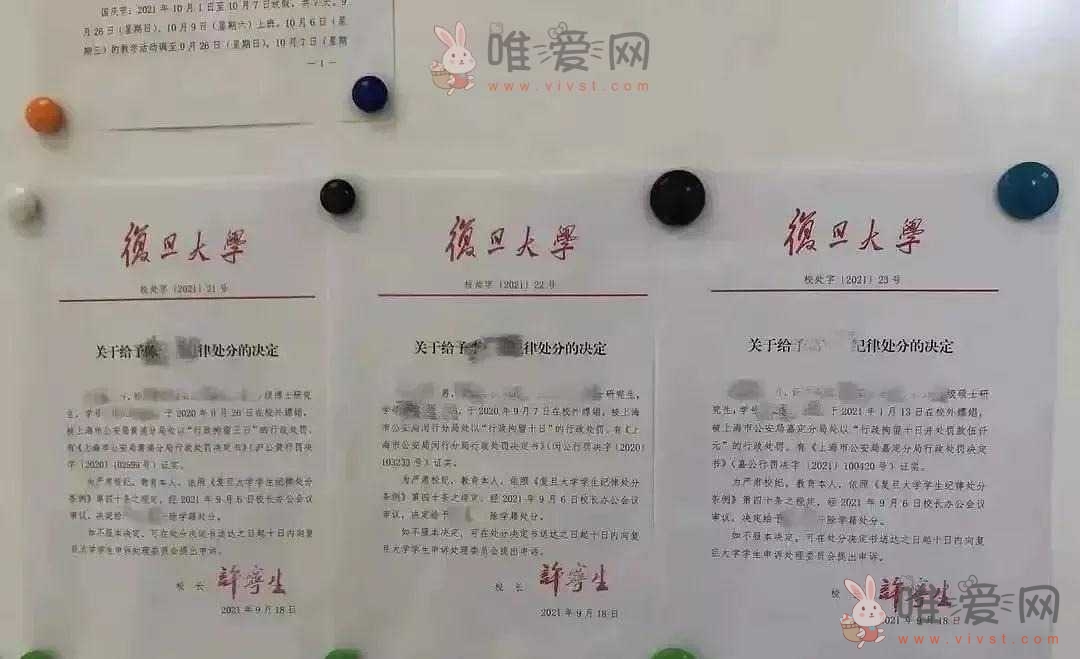 国庆节：2021年10月1日至10月7日放假，共7天。9
月26日（星期日）、10月9日（星期六）上班。10月6日（星
期三）的教学活动调至9月26日（星期日），10月7日（星期
—1—
唯爱网
www.vivst.com
復旦大學
校处字〔2021〕21号
关于给予 律处分的决定
校博士研究
生，学号 于2020年9月26日在校外嫖娼，
被上海市公安局黄浦分局处以“行政拘留三日”的行政处罚，
有《上海市公安局黄浦分局行政处罚决定书》（沪公黄行罚决
字〔2020〕 号）证实。
为严肃校纪，教育本人，依照《复旦大学学生纪律处分
条例》第四十条之规定，经2021年9月6日校长办公会议
审议，决定给 除学籍处分。
如不服本决定，可在处分决定书送达之日起十日内向复
旦大学学生申诉处理委员会提出申诉。
校 长 許寧生
2021年9月18日
復旦大學
校处字〔2021〕22号
关于给予 纪律处分的决定
男， 研究生，
学号 ，于2020年9月7日在校外嫖娼，被上
海市公安局闵行分局处以“行政拘留十日”的行政处罚，有《上
海市公安局闵行分局行政处罚决定书》（闵公行罚决字〔2020〕
103233号）证实。
为严肃校纪，教育本人，依照《复旦大学学生纪律处分
条例》第四十条之规定，经2021年9月6日校长办公会议
审议，决定给予 除学籍处分。
如不服本决定，可在处分决定书送达之日起十日内向复
旦大学学生申诉处理委员会提出申诉。
校 长 許寧生
2021年9月18日
復旦大學
校处字〔2021〕23号
关于给予 纪律处分的决定
校硕士研
究生，学号 于2021年1月13日在校外嫖娼，
被上海市公安局嘉定分局处以“行政拘留十日并处罚款伍仟
元”的行政处罚，有《上海市公安局嘉定分局行政处罚决定
书》（嘉公行罚决字〔2021〕100420号）证实。
为严肃校纪，教育本人，依照《复旦大学学生纪律处分
条例》第四十条之规定，经2021年9月6日校长办公会议
审议，决定给予 除学籍处分。
如不服本决定，可在处分决定书送达之日起十日内向复
旦大学学生申诉处理委员会提出申诉。
校 許寧生
2021年9月18日
唯爱网
www.vivst.com